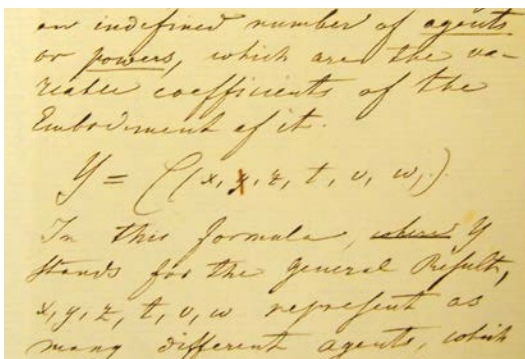 an indefined number of agents
or powers, which are the va-
riable coefficients of the
Embodiment of it.
Y = C(x, y, z, t, v, w,)
In this formula, where Y
stands for the general Result,
x, y, z, t, v, w represent as
many different agents, which